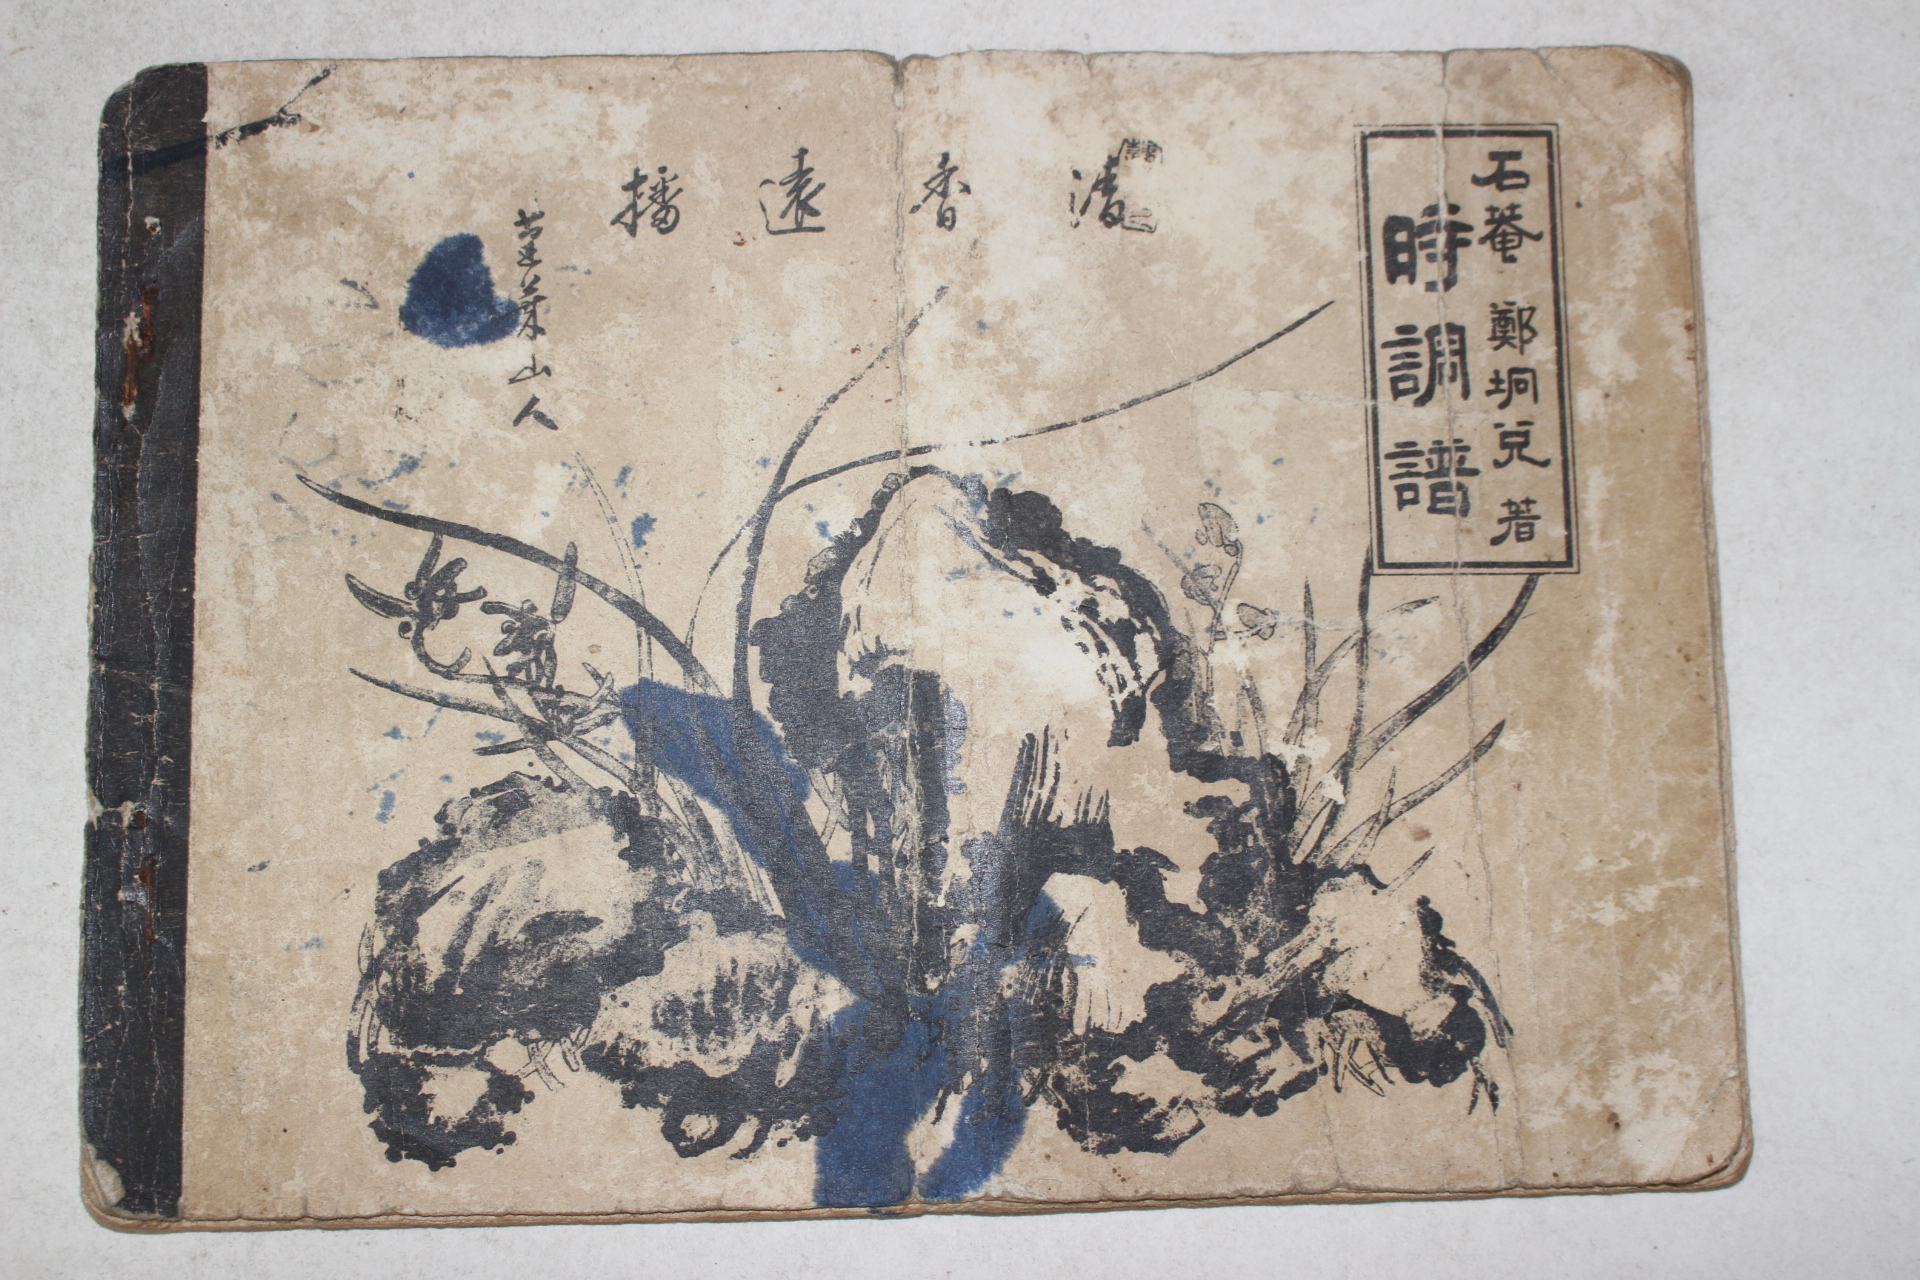 石菴 鄭坰兌 著
時調譜
清香遠播
山人